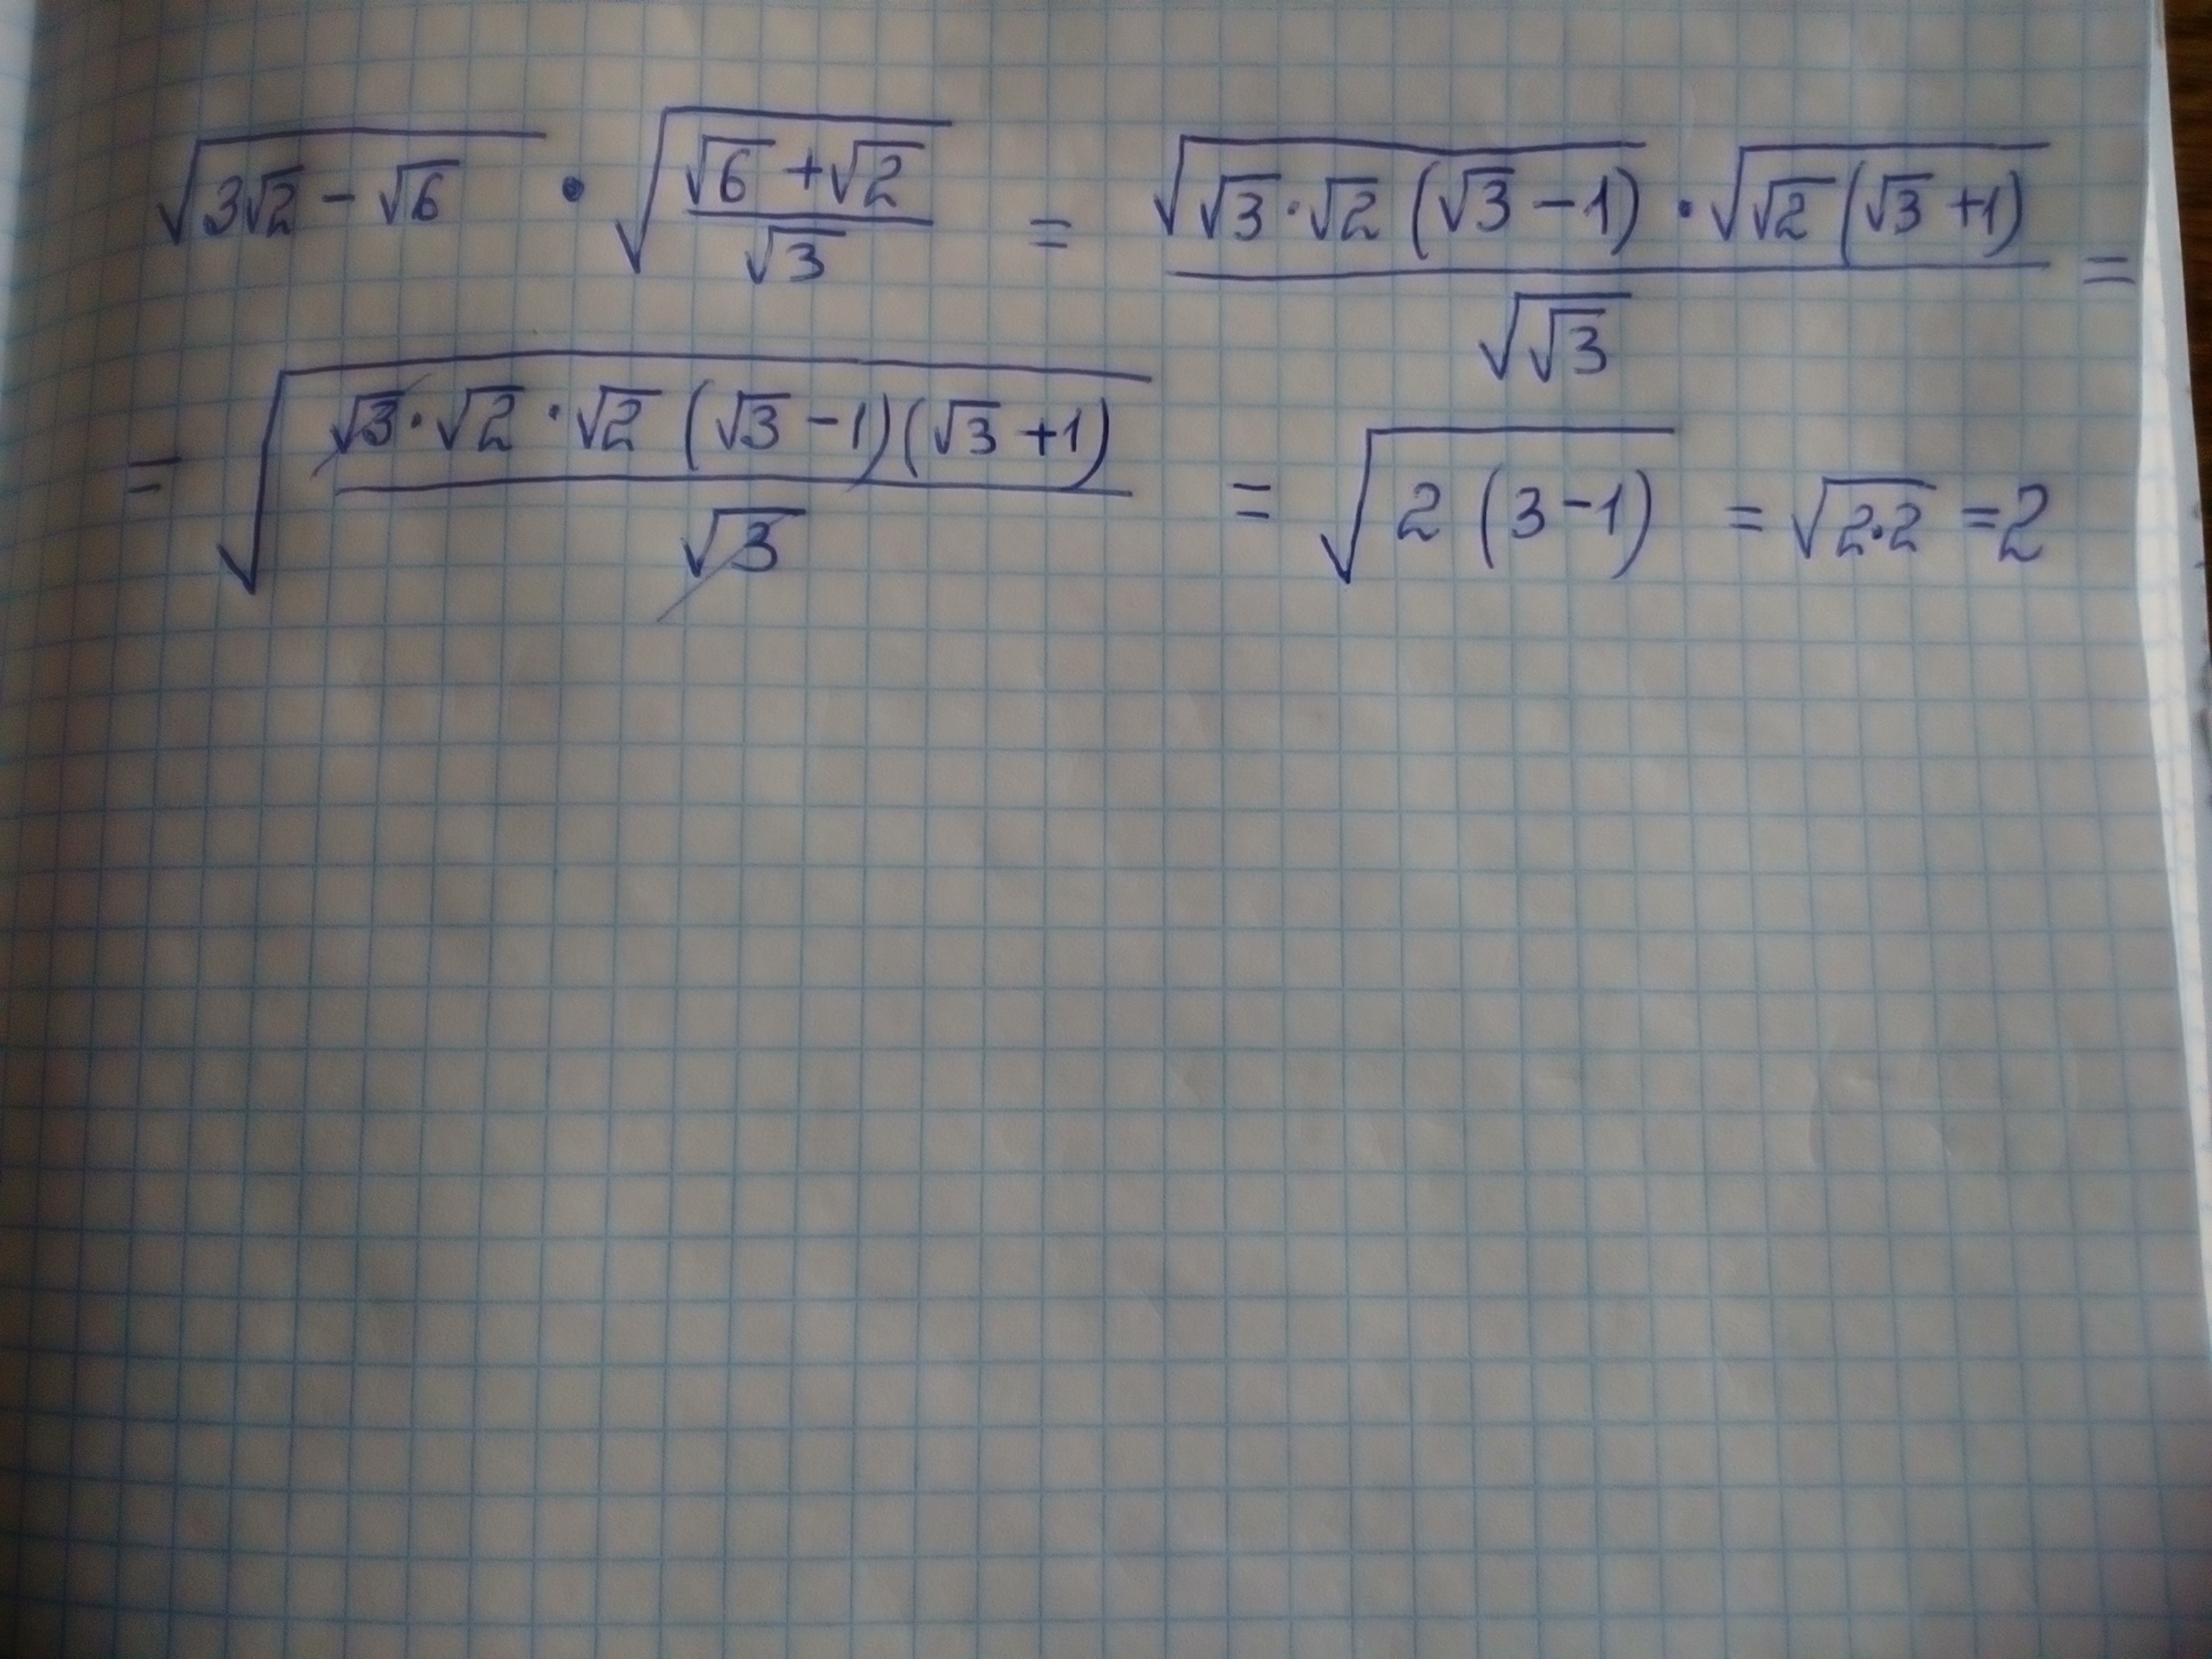 √(3√2 - √6) • √((√6 + √2)/√3) = (√(√3·√2(√3 - 1)) · √(√2(√3 + 1)))/√√3 =
= √((√3·√2·√2(√3 - 1)(√3 + 1))/√3) = √(2(3 - 1)) = √(2·2) = 2